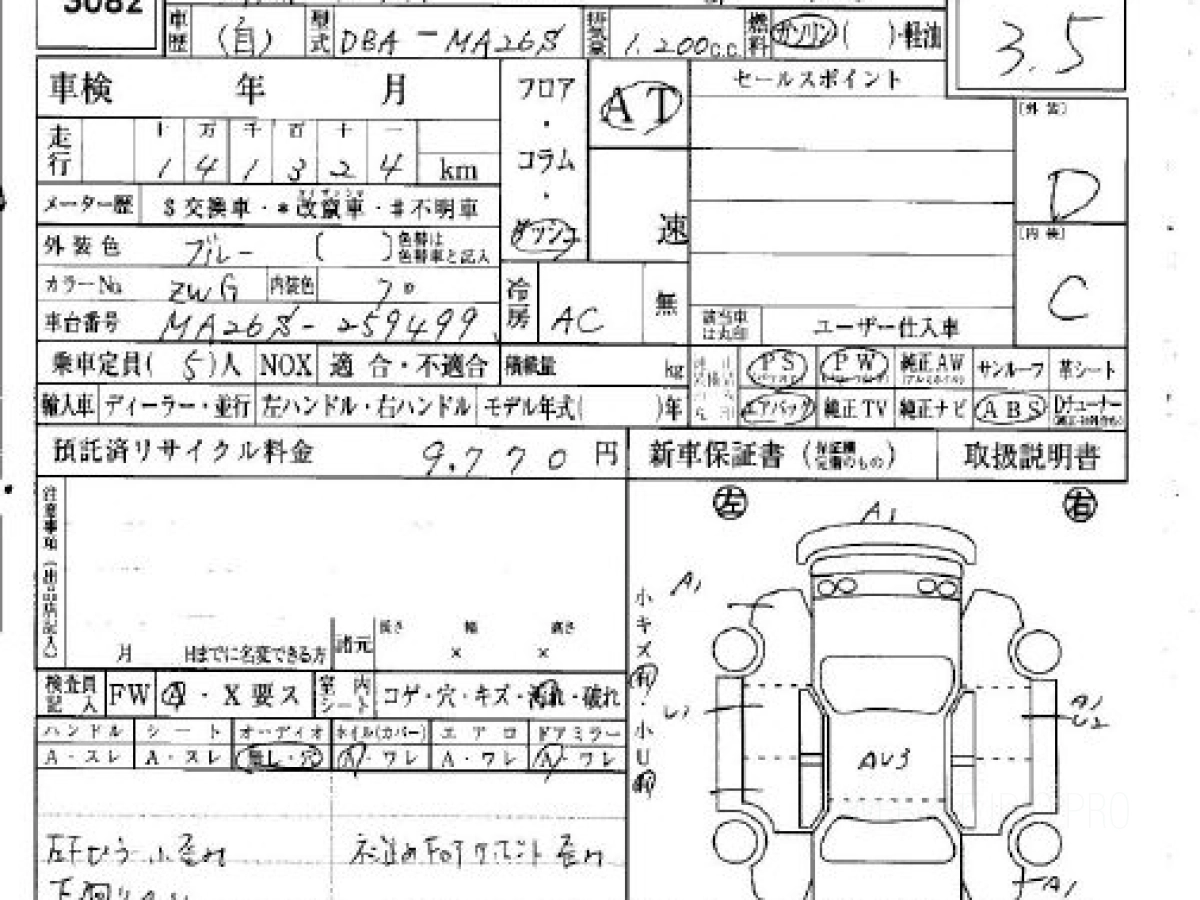 3082
車歴 (自) 型式 DBA-MA26S 排気量 1,200c.c. 燃料 ガソリン( )・軽油
3.5
車検 年 月
フロア・コラム・ダッシュ
AT
速
セールスポイント
[外装]
D
[内装]
C
走行 十 万 千 百 十 一
1 4 1 3 2 4 km
メーター歴 $交換車・*改竄車・#不明車
外装色 ブルー ( ) 色替は色替車と記入
カラーNo. ZWG 内装色 70
冷房 AC 無
車台番号 MA26S-259499
該当車は丸印 ユーザー仕入車
乗車定員( 5 )人 NOX 適合・不適合 積載量 kg
PS PW 純正AW サンルーフ 革シート
輸入車 ディーラー・並行 左ハンドル・右ハンドル モデル年式( )年
エアバッグ 純正TV 純正ナビ ABS
預託済リサイクル料金 9,770 円
新車保証書 取扱説明書
左 右
注意事項(出品店記入)
月 日までに名変できる方 諸元 長さ × 幅 × 高さ
検査員記入 FW A・X要ス 室内シート コゲ・穴・キズ・汚れ・破れ
ハンドル シート オーディオ ホイル(カバー) エアロ ドアミラー
A・スレ A・スレ 無し・穴 A・ワレ A・ワレ A・ワレ
小キズ有・小U有
A1
A1
U1
A1
U2
AU3
A1